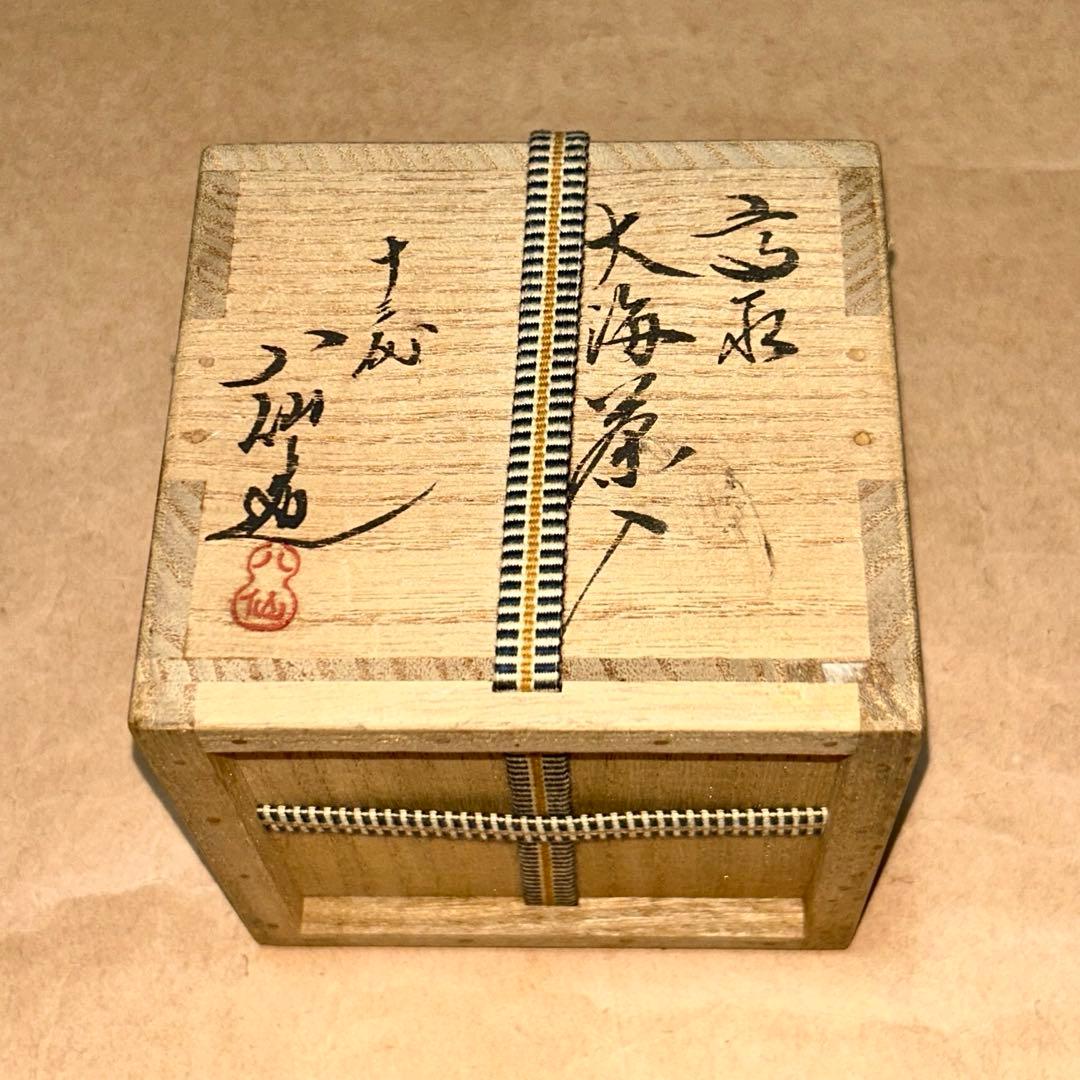 高取
大海茶入
十三代
八仙造
八仙